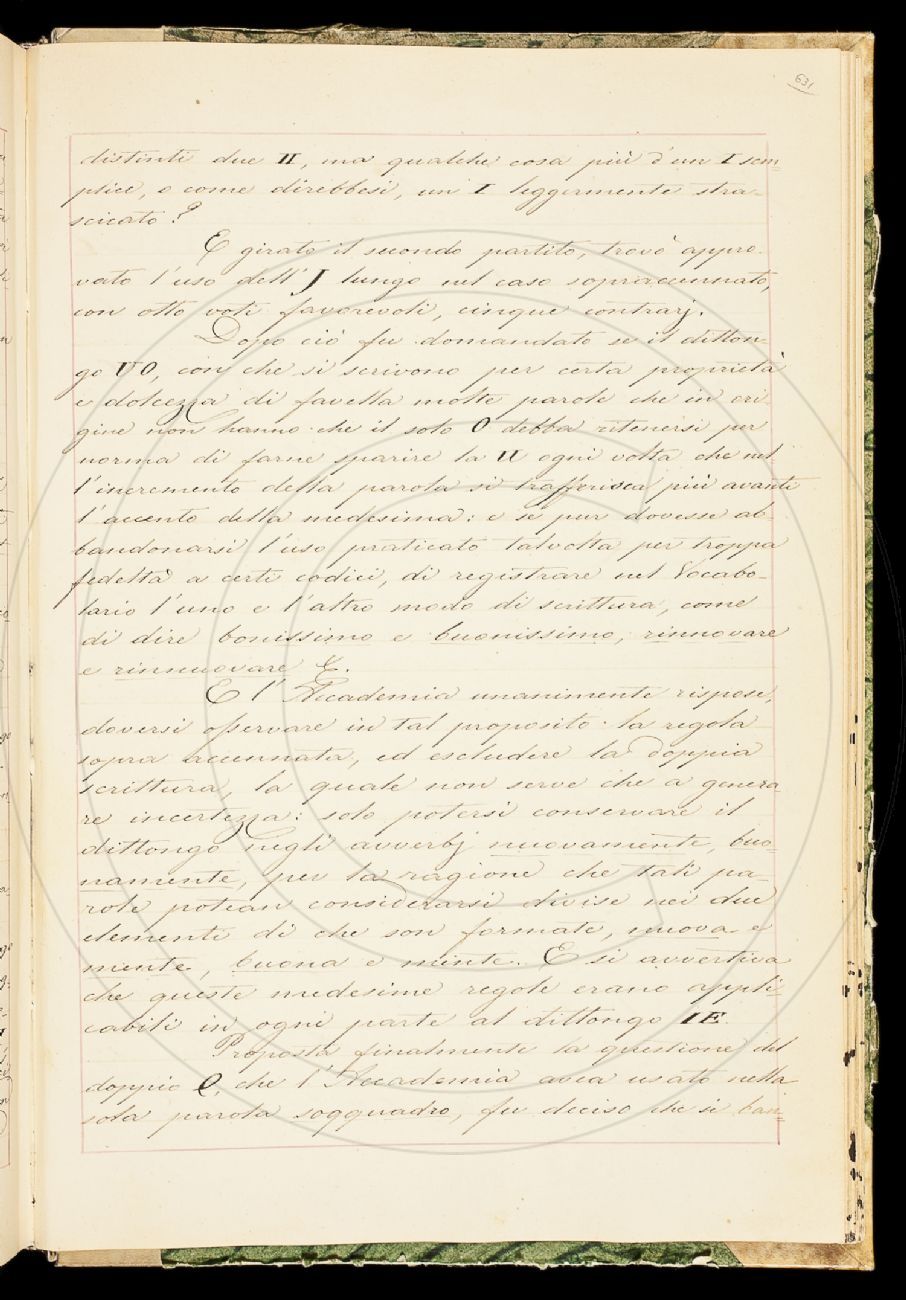 631
distinti due II, ma qualche cosa più d'un I sem=
plice, o come direbbesi, un I leggermente stra-
scicato?
E girato il secondo partito, trovò appro-
vato l'uso dell'J lungo nel caso sopraccennato,
con otto voti favorevoli, cinque contrarj.
Dopo ciò fu domandato se il ditton-
go UO, con che si scrivono per certa proprietà
e dolcezza di favella molte parole che in ori
gine non hanno che il solo O debba ritenersi per
norma di farne sparire la U ogni volta che nel
l'incremento della parola si trasferisca più avanti
l'accento della medesima: e se pur dovesse ab-
bandonarsi l'uso praticato talvolta per troppa
fedeltà a certi codici, di registrare nel Vocabo-
lario l'uno e l'altro modo di scrittura, come
di dire bonissimo e buonissimo, rinnovare
e rinnuovare &.
E l'Accademia unanimente rispose,
doversi osservare in tal proposito la regola
sopra accennata, ed escludere la doppia
scrittura, la quale non serve che a genera-
re incertezza: solo potersi conservare il
dittongo negli avverbj nuovamente, buo=
namente, per la ragione che tali pa-
role potean considerarsi divise nei due
elementi di che son formate, nuova e
mente, buona e mente. E si avvertiva
che queste medesime regole erano appli=
cabili in ogni parte al dittongo IE.
Proposta finalmente la questione del
doppio Q, che l'Accademia avea usato nella
sola parola soqquadro, fu deciso che si ban=